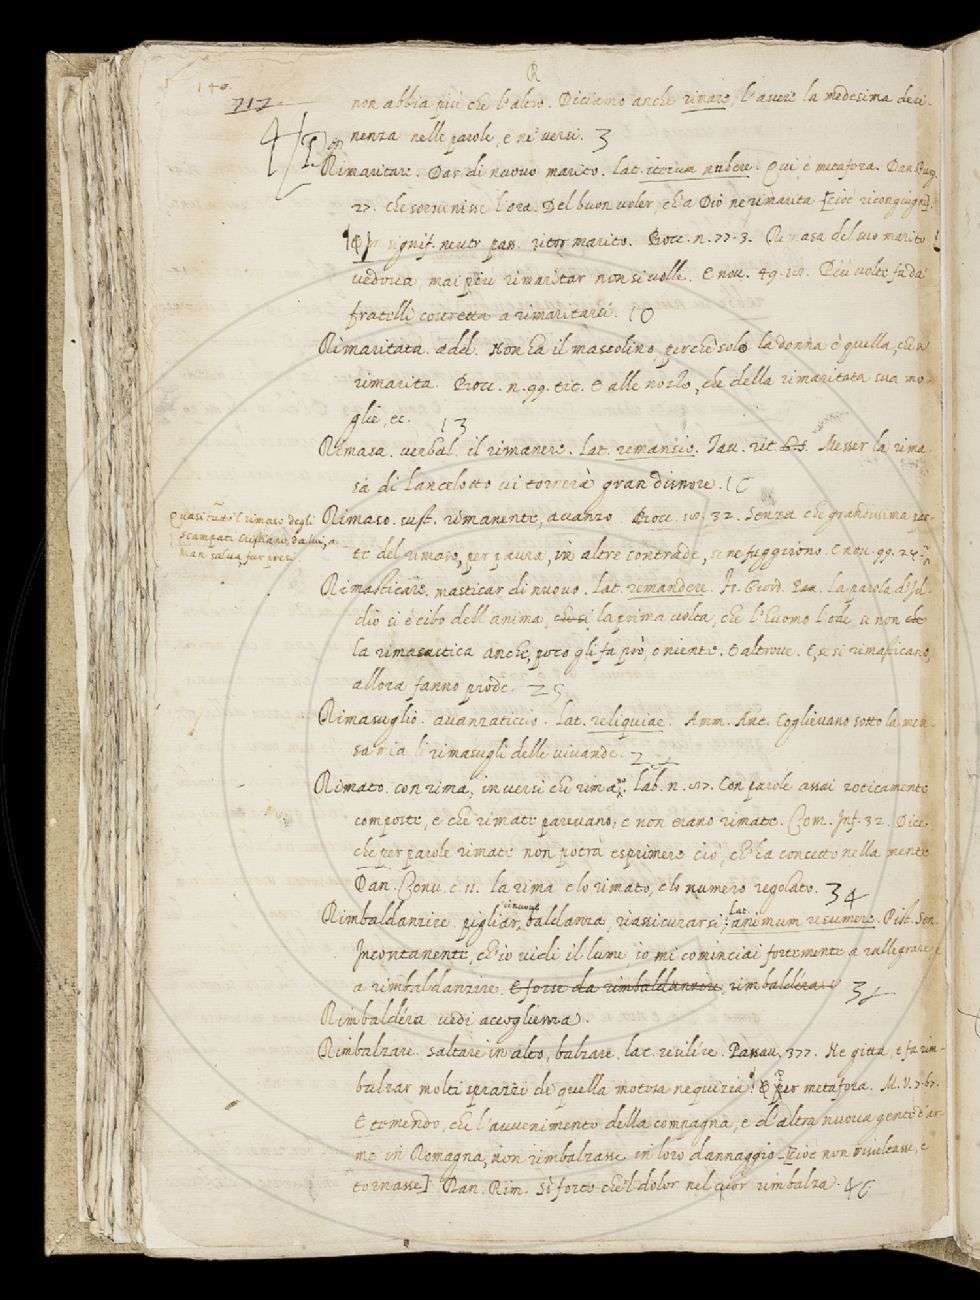 R
140.
717
non abbia più che l'altro. Diciamo anche rimare, l'avere la medesima desi-
nenza nelle parole, e ne' versi. 3
Rimaritare. Dar di nuovo marito. Lat. iterum nubere. Qui è metafora. Dan. Purg.
27. che sorvenisse l'ora. Del buon voler, ch'a Dio ne rimarita [cioè ricongiugne].
signif. neutr. pass. ritor marito. Bocc. n. 77. 3. Rimasa del suo marito
vedova, mai più rimaritar non si volle. E nov. 49. Più volte fu da'
fratelli costretta a rimaritarsi. 10
Rimaritata. add. Non ha il mascolino, perche solo la donna è quella, che si
rimarita. Bocc. n. 99. tit. E alle nozze, che della rimaritata sua mo-
glie, ec. 13
Rimasa. verbal. il rimanere. Lat. remansio. Tav. rit. Messer la rima-
sa di Lancelotto vi tornerà gran disnore. 16
Rimaso. sust. rimanente, avanzo. Bocc. 32. Senza che grandissima par-
te del rimaso, per paura, in altre contrade, se ne fuggirono. E nov. 99. 24.
Quasi tutti i rimaso degli
scampati Cristiani, da lui, a
man salva, fur presi.
Rimasticare. masticar di nuovo. Lat. remandere. Fr. Giord. La parola d'Id-
dio si è cibo dell'anima, la prima volta, che l'huomo l'ode, se non
la rimastica anche, poco gli fa prò, o niente. E altrove. E, se si rimasticano,
allora fanno prode. 25
Rimasuglio. avanzaticcio. Lat. reliquiae. Amm. Ant. Coglievano sotto la men-
sa mia li rimasugli delle vivande.
Rimato. con rima, in versi che rima. Lab. n. Con parole assai roticamente
composte, e che rimate parevano, e non erano rimate. Com. Inf. 32. Dice,
che per parole rimate non potrà esprimere ciò, ch'ha concetto nella mente.
Dan. Conv. c. 11. la rima e lo rimato, e lo numero regolato. 34
Rimbaldanzire. pigliar baldanza, riassicurarsi. Lat. animum resumere. Pist. Sen.
Incontanente, ch'io vidi il lume io mi cominciai fortemente a rallegrare, e
a rimbaldanzire. E forse da rimbaldanzire, rimbaldera.
Rimbaldera vedi accoglienza.
Rimbalzare. saltare in alto, balzare. Lat. resilire. Passav. 377. Ne gitta, e fa rim-
balzar molti sprazzi de quella motosa nequizia. E per metafora. M. V. 7. 67.
E temendo, che l'avvenimento della compagna, e d'altra nuova gente d'ar-
me in Romagna, non rimbalzasse in loro dannaggio [cioè non risultasse, e
tornasse] Dan. Rim. Sì forte che'l dolor nel cuor rimbalza. 46